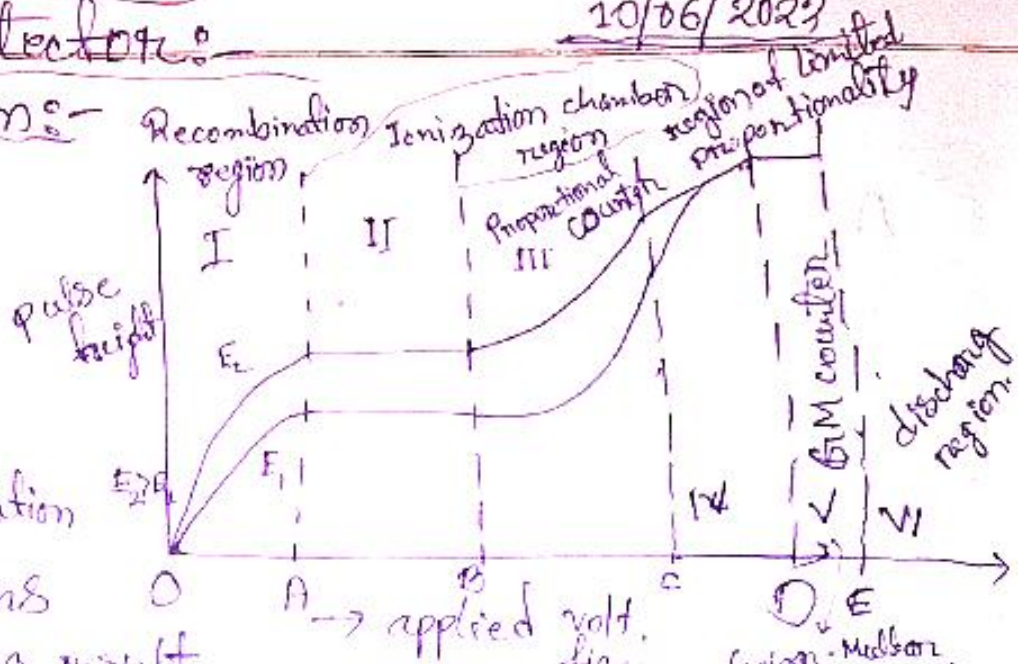 tector:-
10/06/2023
n:-
Recombination
region
Ionization chamber
region
region of limited
proportionality
Proportional
counter
I
II
III
pulse
height
E₂
E₁
E₂>E₁
IV
V GM counter
VI
discharg
region.
O
A
B
C
D
E
→ applied volt.
ation
ns